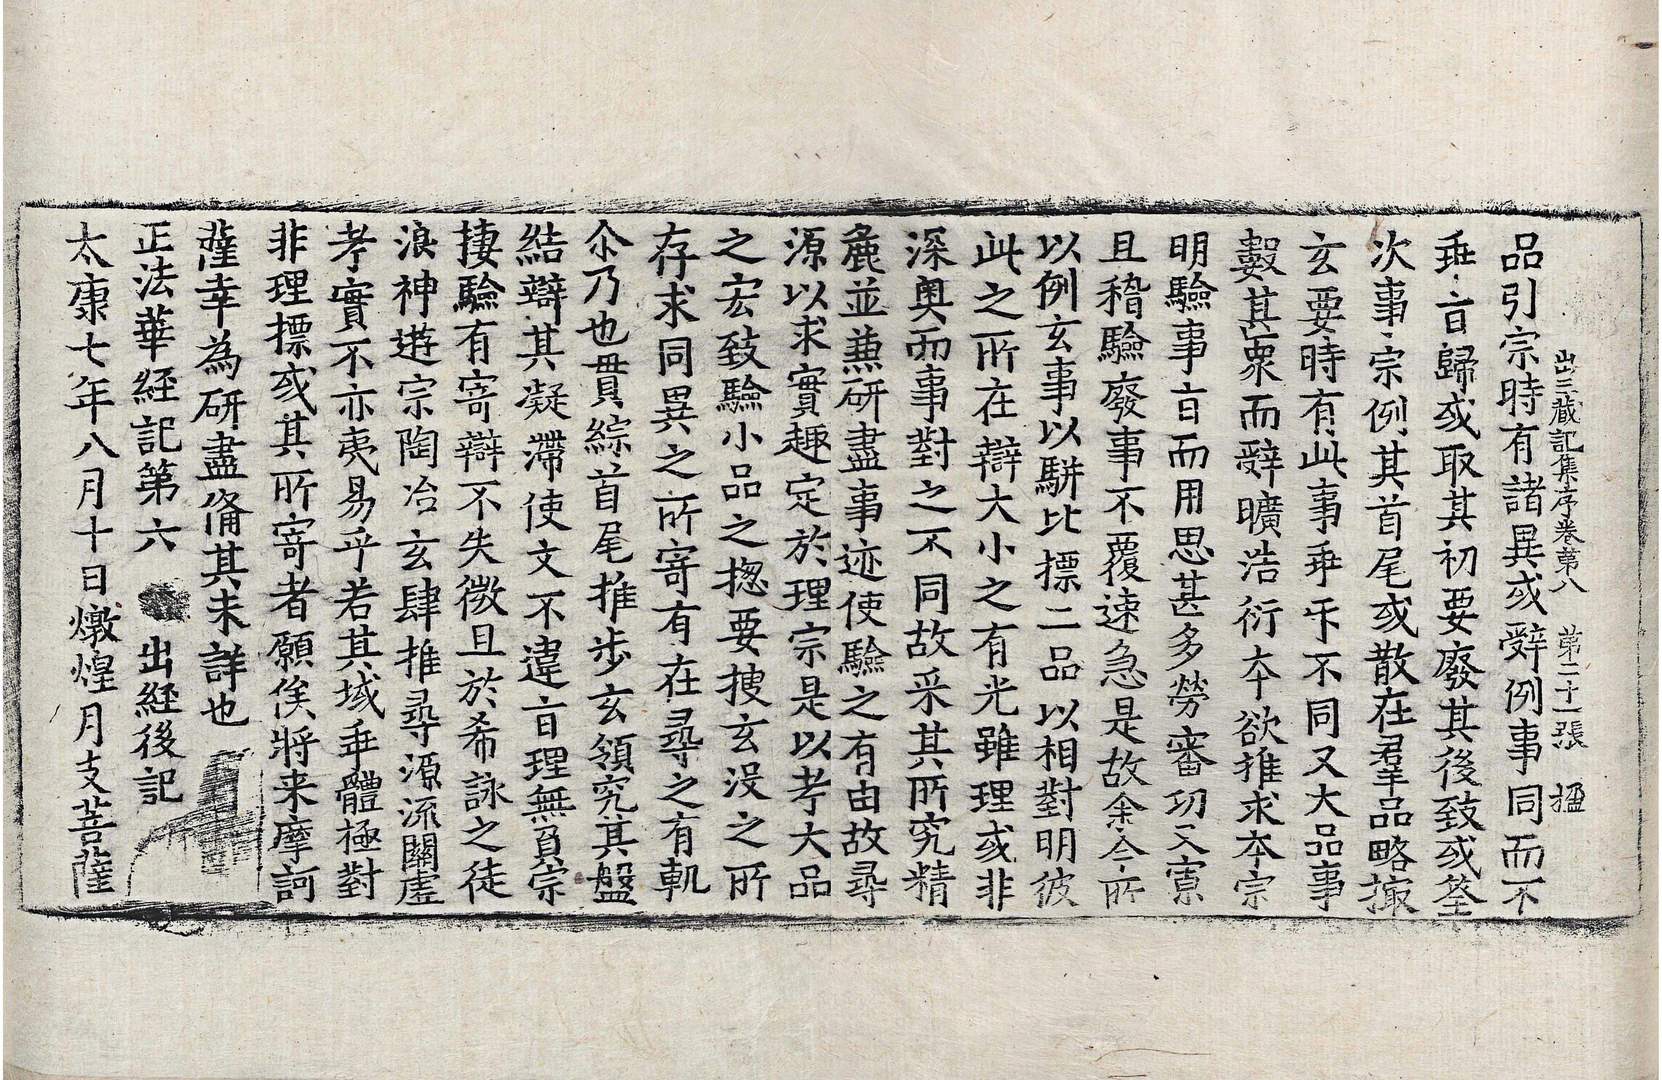 出三藏記集序卷第八 第二十一張 楹
品引宗時有諸異或辭例事同而不
乖旨歸或取其初要廢其後致或筌
次事宗例其首尾或散在羣品略撮
玄要時有此事乖互不同又大品事
數甚衆而辭曠浩衍本欲推求本宗
明驗事旨而用思甚多勞審功又寡
且稽驗廢事不覆速急是故余今所
以例玄事以駢比標二品以相對明彼
此之所在辯大小之有光雖理或非
深奧而事對之不同故采其所究精
麁並兼研盡事迹使驗之有由故尋
源以求實趣定於理宗是以考大品
之宏致驗小品之揔要搜玄沒之所
存求同異之所寄有在尋之有軌
尒乃也貫綜首尾推步玄領究其盤
結辯其凝滯使文不違旨理無負宗
捿驗有寄辯不失徵且於希詠之徒
浪神遊宗陶冶玄肆推尋源流關虛
考實不亦夷易乎若其域乖體極對
非理標或其所寄者願俟將来摩訶
薩幸為研盡脩其未詳也
正法華經記第六 出経後記
太康七年八月十日燉煌月支菩薩